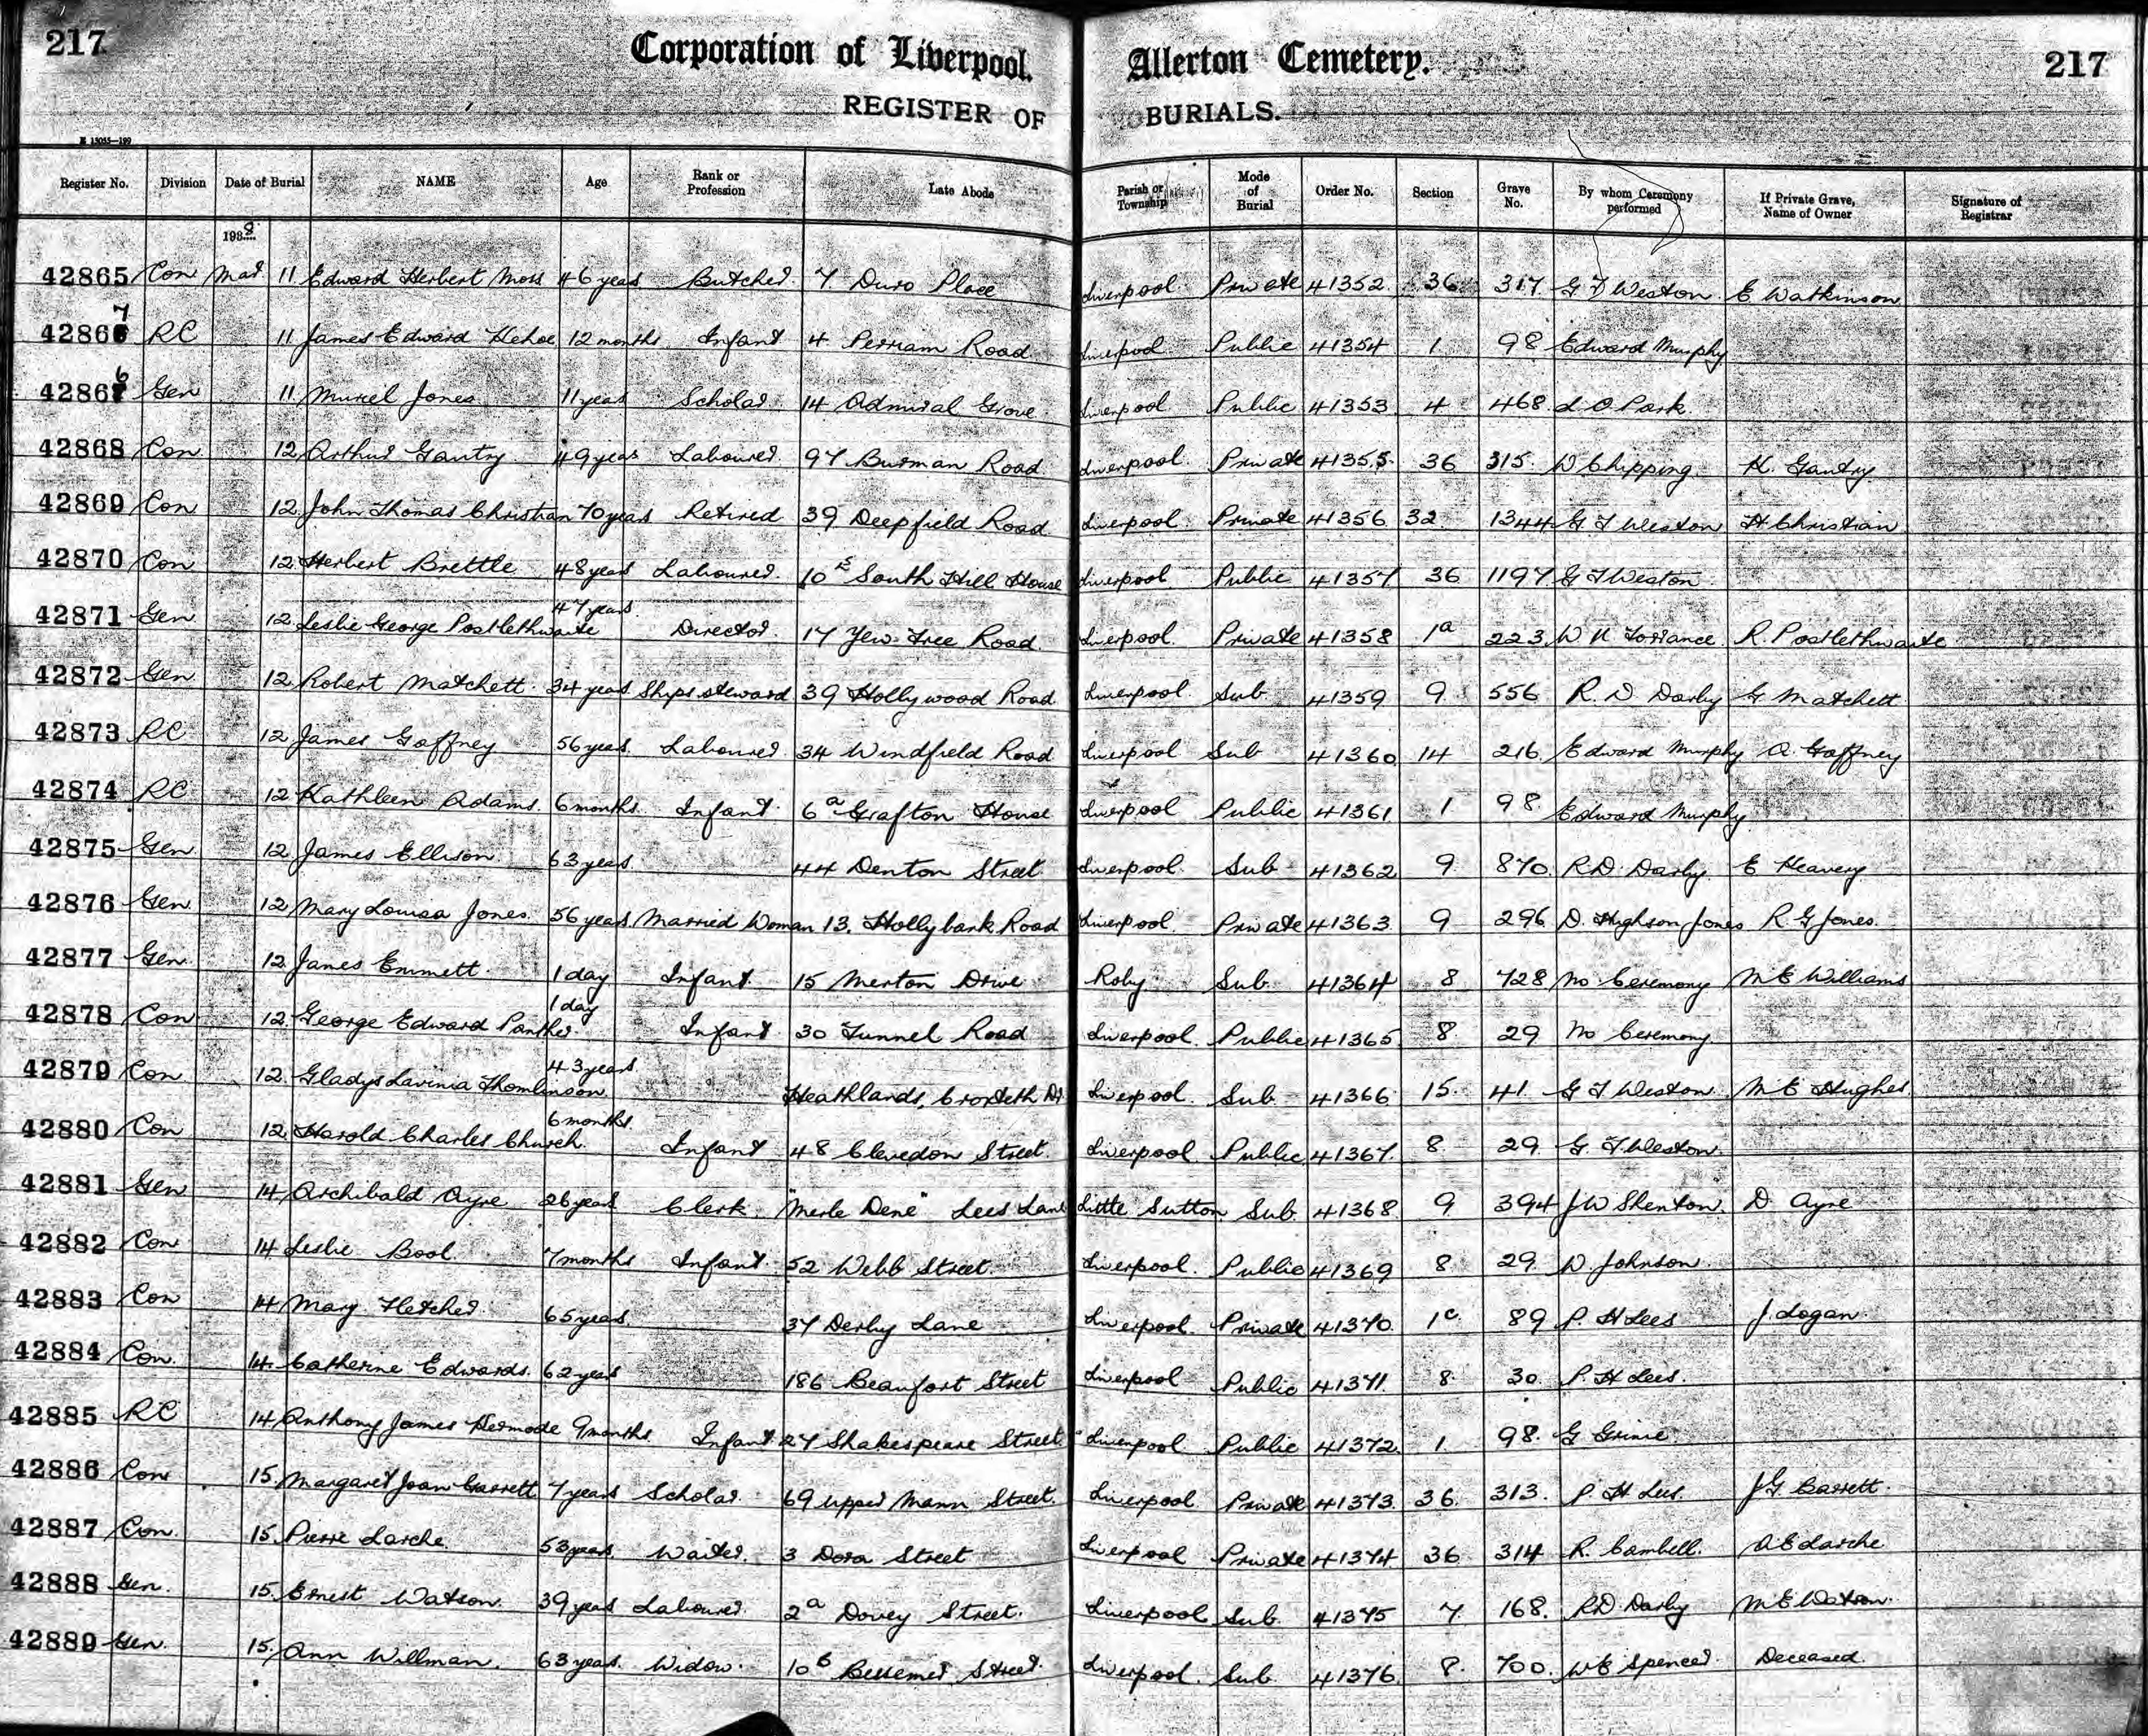 217 Corporation of Liverpool. Allerton Cemetery. 217
REGISTER OF BURIALS.
Register No. Division Date of Burial NAME Age Rank or Profession Late Abode Parish or Township Mode of Burial Order No. Section Grave No. By whom Ceremony performed If Private Grave, Name of Owner Signature of Registrar
1938
42865 Con Mar 11 Edward Herbert Moss 46 years Butcher 7 Duro Place Liverpool Private 41352 36 317 G T Weston E Watkinson
42867 RC 11 James Edward Kehoe 12 months Infant 4 Perriam Road Liverpool Public 41354 1 98 Edward Murphy
42866 Gen 11 Muriel Jones 11 years Scholar 14 Admiral Grove Liverpool Public 41353 4 468 L O Park
42868 Con 12 Arthur Gantry 49 years Labourer 97 Burman Road Liverpool Private 41355 36 315 W Chipping K. Gantry
42869 Con 12 John Thomas Christian 70 years Retired 39 Deepfield Road Liverpool Private 41356 32 1344 G T Weston H Christian
42870 Con 12 Herbert Brettle 48 years Labourer 10 E South Hill House Liverpool Public 41357 36 1197 G T Weston
42871 Gen 12 Leslie George Postlethwaite 47 years Director 17 Yew Tree Road Liverpool Private 41358 1a 223 W K Torrance R. Postlethwaite
42872 Gen 12 Robert Matchett 34 years Ships steward 39 Hollywood Road Liverpool Sub 41359 9 556 R. D. Darby G Matchett
42873 RC 12 James Gaffney 56 years Labourer 34 Windfield Road Liverpool Sub 41360 14 216 Edward Murphy A Gaffney
42874 RC 12 Kathleen Adams 6 months Infant 6a Grafton House Liverpool Public 41361 1 98 Edward Murphy
42875 Gen 12 James Ellison 63 years 44 Denton Street Liverpool Sub 41362 9 870 R D Darby E Heavery
42876 Gen 12 Mary Louisa Jones 56 years Married Woman 13 Hollybank Road Liverpool Private 41363 9 296 D. Highson Jones R G Jones
42877 Gen 12 James Emmett 1 day Infant 15 Merton Drive Roby Sub 41364 8 728 No Ceremony M E Williams
42878 Con 12 George Edward Panther 1 day Infant 30 Tunnel Road Liverpool Public 41365 8 29 No Ceremony
42879 Con 12 Gladys Lavinia Thomlinson 43 years Heathlands, Croxteth Dr Liverpool Sub 41366 15 41 G T Weston M E Hughes
42880 Con 12 Harold Charles Church 6 months Infant 48 Clevedon Street Liverpool Public 41367 8 29 G. T. Weston
42881 Gen 14 Archibald Ayre 26 years Clerk "Merle Dene" Lees Lane Little Sutton Sub 41368 9 394 J W Shenton D Ayre
42882 Con 14 Leslie Bool 7 months Infant 52 Webb Street Liverpool Public 41369 8 29 W. Johnson
42883 Con 14 Mary Fletcher 65 years 37 Derby Lane Liverpool Private 41370 1c 89 P. H Lees J. Logan
42884 Con 14 Catherine Edwards 62 years 186 Beaufort Street Liverpool Public 41371 8 30 P. H Lees
42885 RC 14 Anthony James Kermode 9 months Infant 27 Shakespeare Street Liverpool Public 41372 1 98 G Grime
42886 Con 15 Margaret Joan Garrett 7 years Scholar 69 Upper Mann Street Liverpool Private 41373 36 313 P. H Lees J G Garrett
42887 Con 15 Pierre Larche 53 years Waiter 3 Dora Street Liverpool Private 41374 36 314 R. Cambell A E Larche
42888 Gen 15 Ernest Watson 39 years Labourer 2a Dovey Street Liverpool Sub 41375 7 168 R D Darby M E Watson
42889 Gen 15 Ann Willman 63 years Widow 10 b Bessemer Street Liverpool Sub 41376 8 700 W E Spencer Deceased